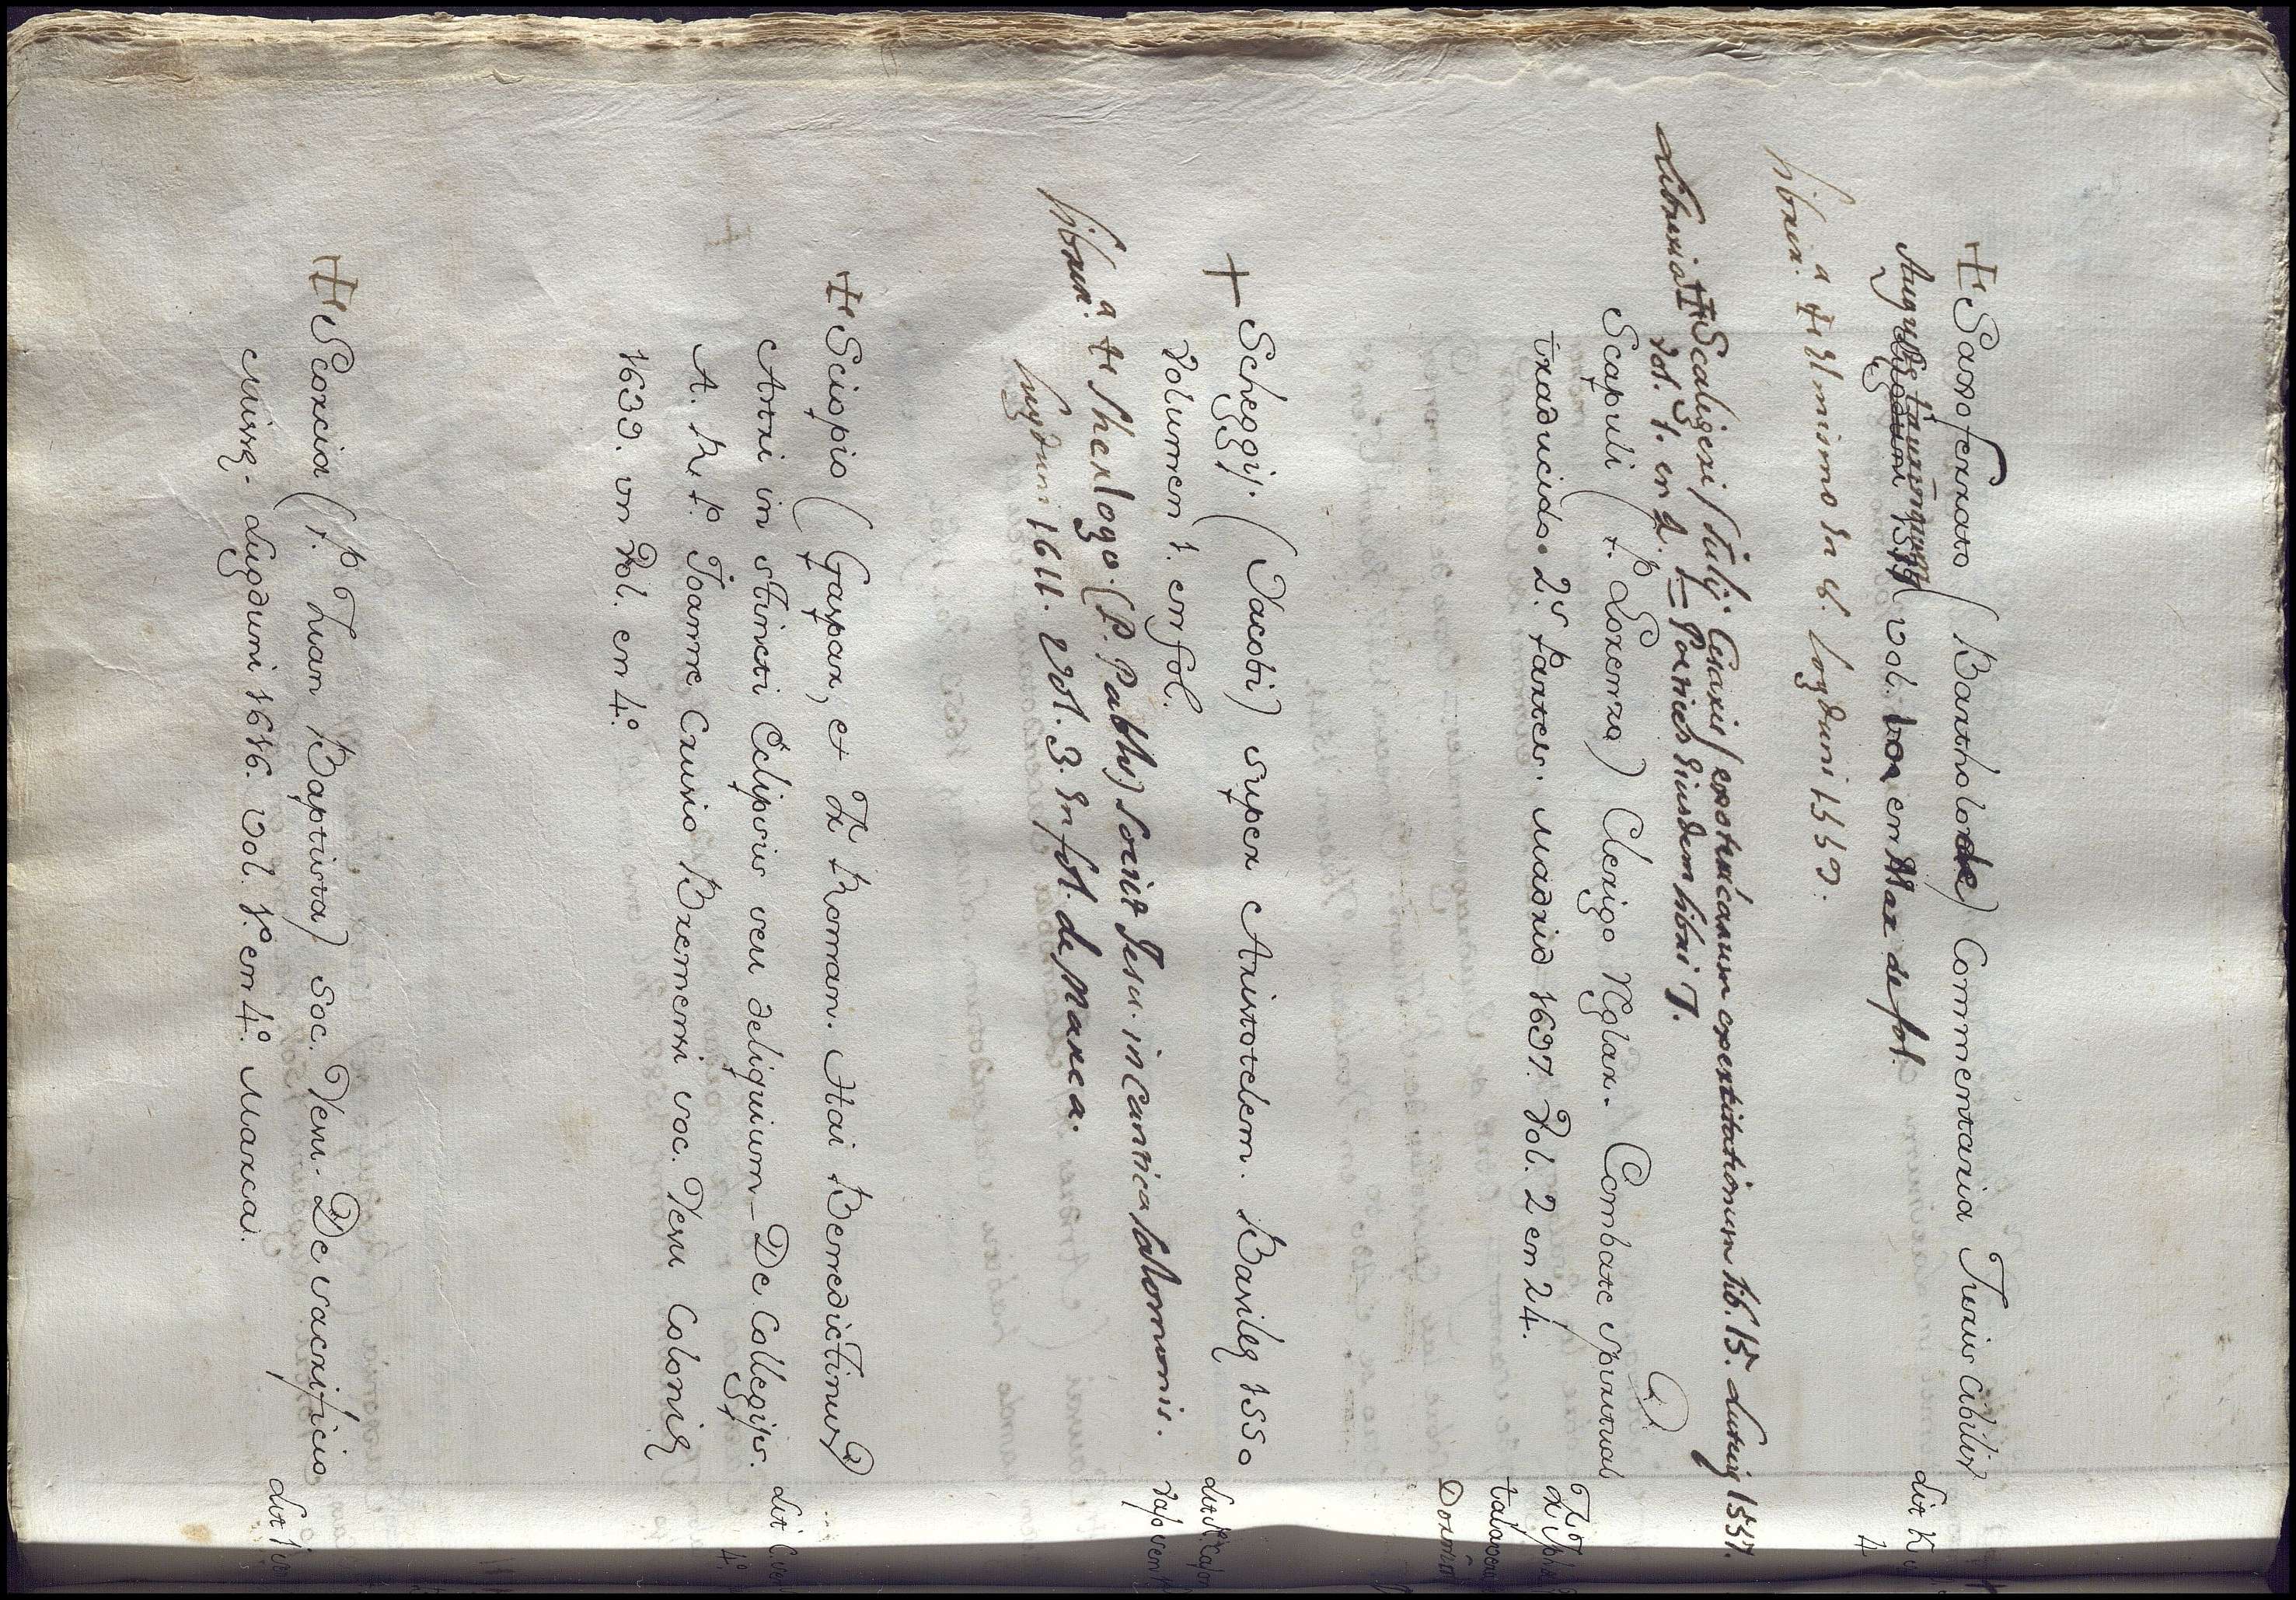 Saxoferrato (Bartholo de) Commentaria Iuris Civilis
Augustę taurinorum vol. en Mar de fol.
Lit K
4
librar.ª El mismo En 8. Lugduni 1550.
Scaligeri (Iulij Cesaris) exotericarum exercitationum lib. 15. Lutetię 1557.
Libreria vol. 1. en 4. = Poemes Eiusdem libri 7.
Scapuli (P. Lorenzo) Clerigo Reglar. Combate Spiritual
traducido. 2.s Partes. Madrid 1697. Vol. 2 en 24.
Scheggij. (Jacobi) super Aristotelem. Basileę 1550
Volumen 1. en fol.
librar.ª Sherlogo. (P. Pablo) Societ Jesu. in Cantica Salomonis.
Lugduni 1611. Vol. 3. En fol. de Marca.
Sciopio (Gaspar, et Fr. Roman. Hai Benedictinus)
Astri in stincti Eclipsis seu deliquium - De Collegijs.
A. R. P. Joanne Crusio Bremensi soc. Jesu Colonię
1633. un Vol. en 4.º
Scorcia (P. Juan Baptista) Soc. Jesu. De sacrificio
Missę. Lugduni 1616. Vol. 1.º en 4.º Marca.